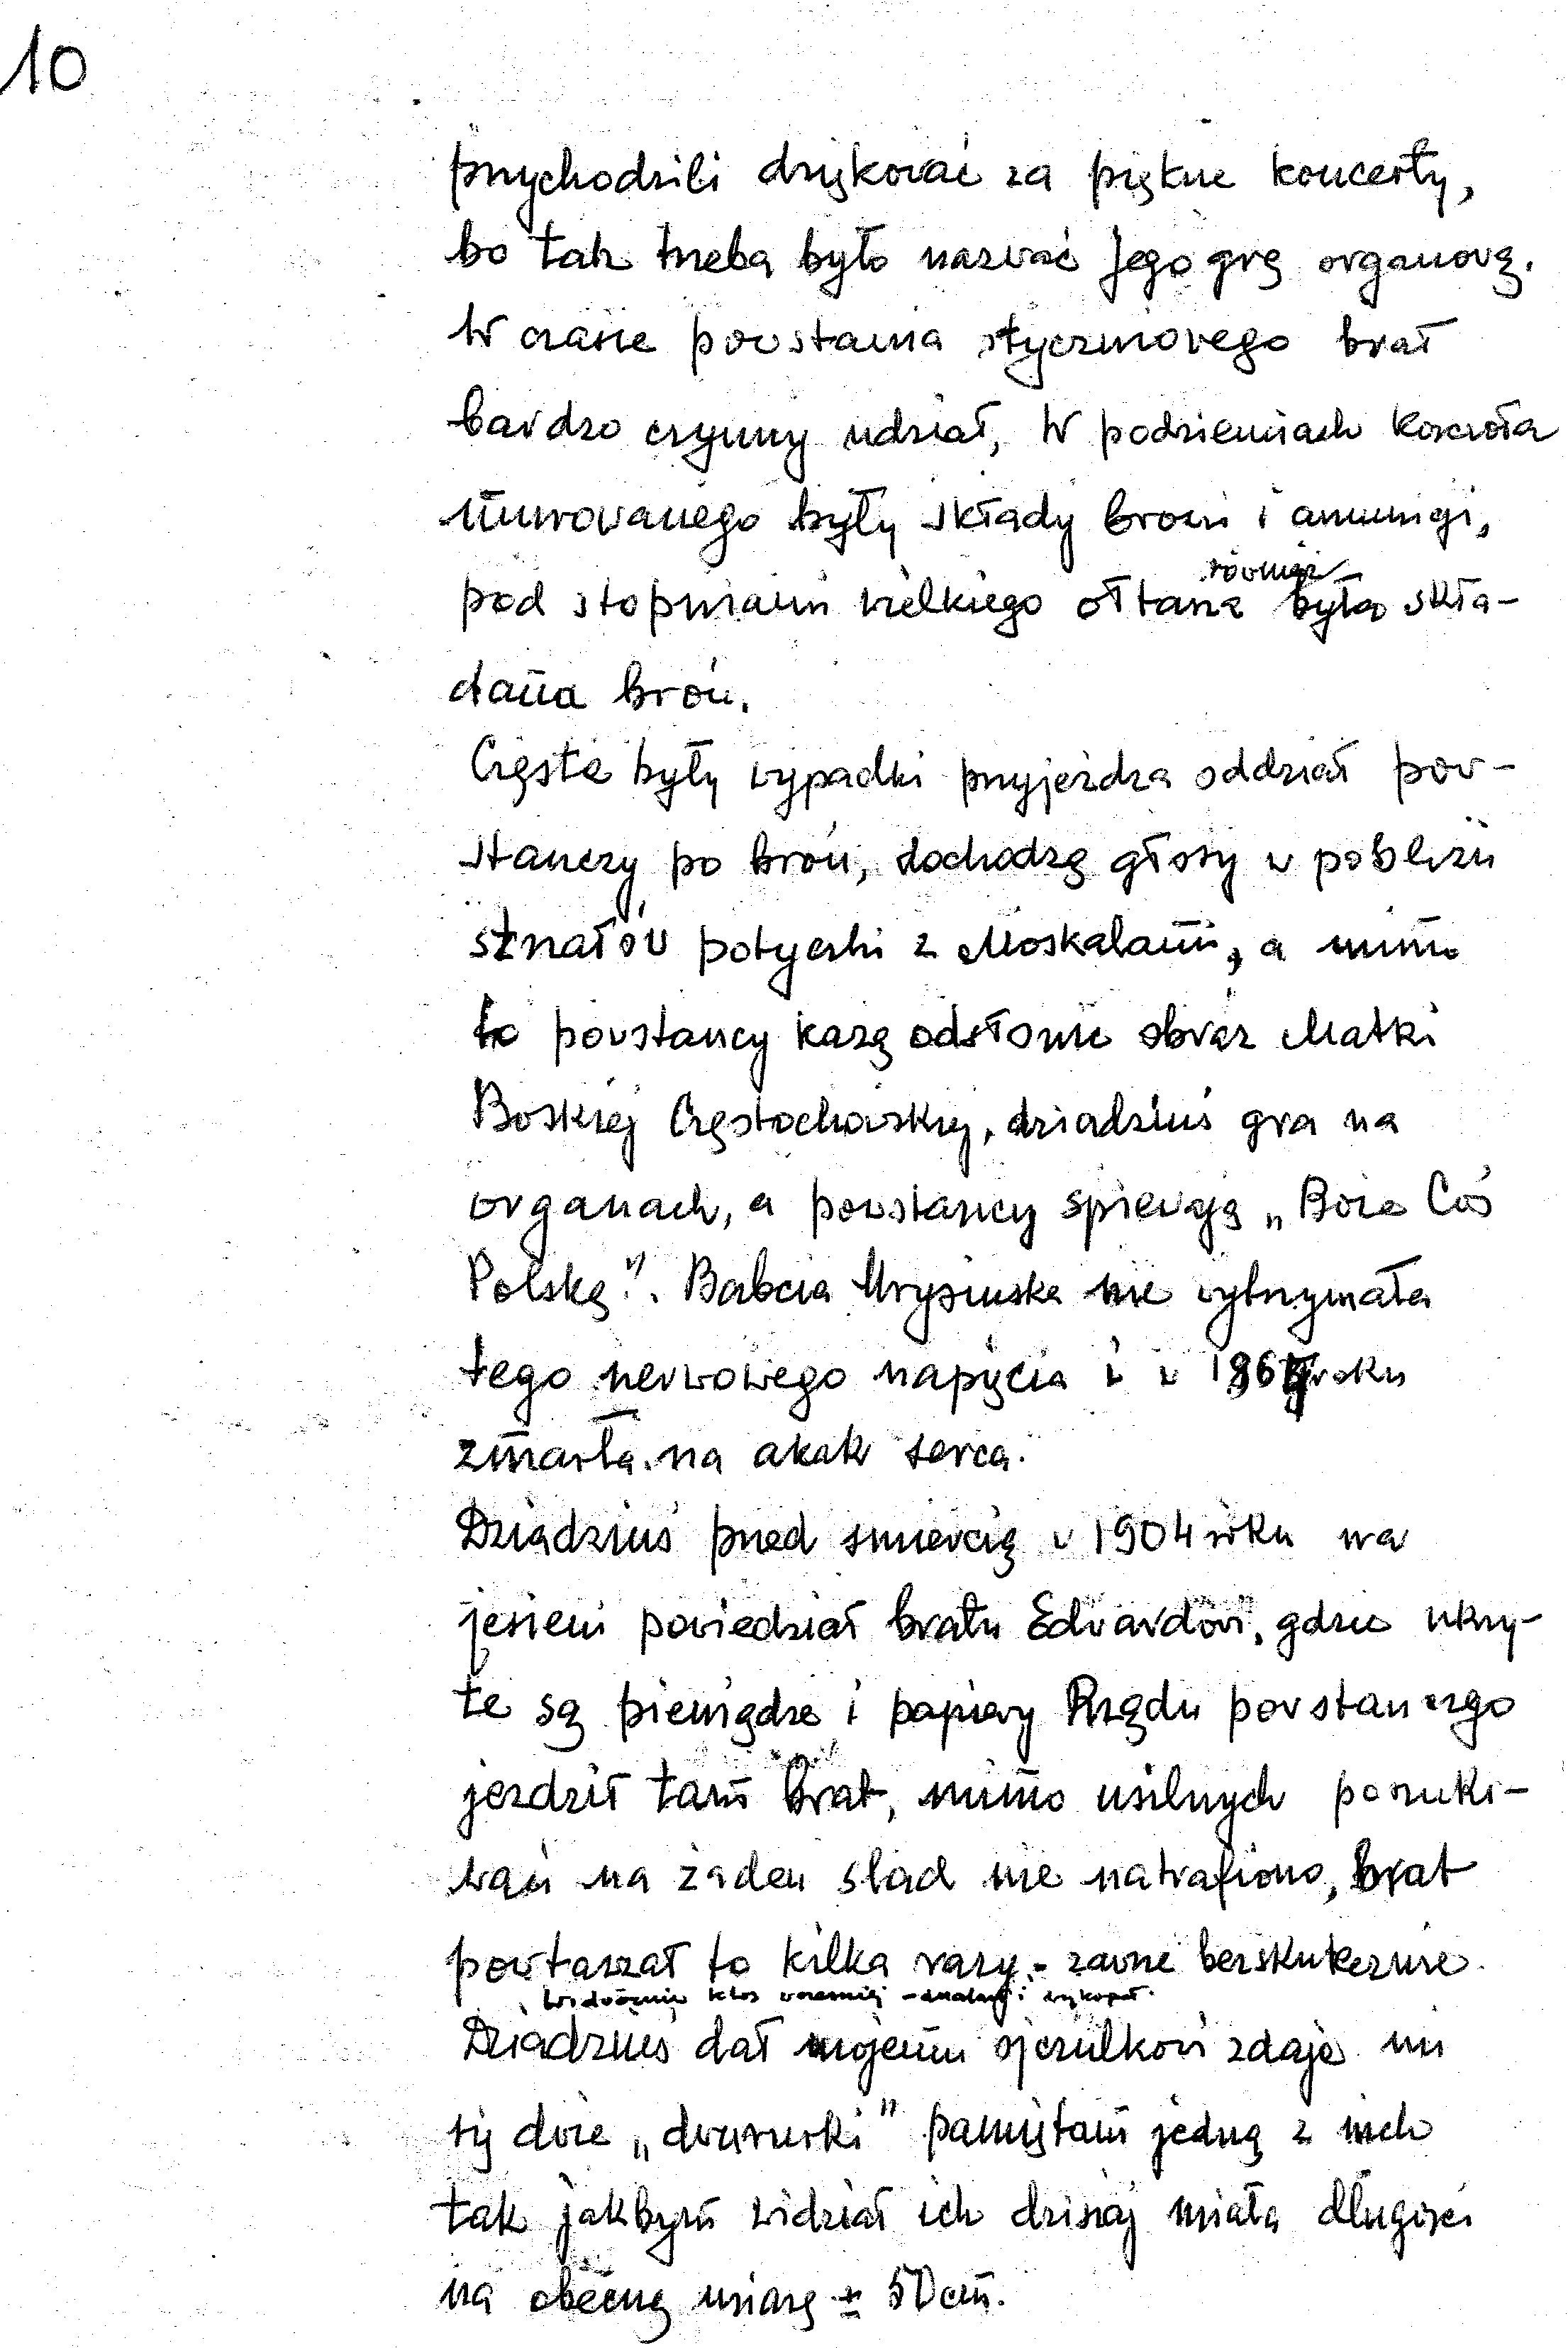 10
przychodzili dziękować za piękne koncerty,
bo tak trzeba było nazwać Jego grę organową.
W czasie powstania styczniowego brał
bardzo czynny udział, W podziemiach kościoła
murowanego były składy broni i amunicji,
również
pod stopniami wielkiego ołtarza była skła-
dana broń.
Częste były wypadki przyjeżdża oddział pow-
stańczy po broń, dochodzą głosy w pobliżu
strzałów potyczki z Moskalami, a mimo
to powstańcy każą odsłonić obraz Matki
Boskiej Częstochowskiej, dziadziuś gra na
organach, a powstańcy śpiewają „Boże Coś
Polskę". Babcia nie wytrzymała
tego nerwowego napięcia i w roku
zmarła na atak serca.
Dziadziuś przed śmiercią w 1904 roku na
jesieni powiedział bratu Edwardowi, gdzie ukry-
te są pieniądze i papiery Rządu powstańczego
jeździł tam brat, mimo usilnych poszuki-
wań na żaden ślad nie natrafiono, brat
powtarzał to kilka razy - zawsze bezskutecznie.
Widocznie ktoś wcześniej znalazł i wykopał.
Dziadziuś dał mojemu ojczulkowi zdaje mi
się dwie „dwururki" pamiętam jedną z nich
tak jakbym widział ich dzisiaj miała długości
na obecną miarę ± 50 cm.